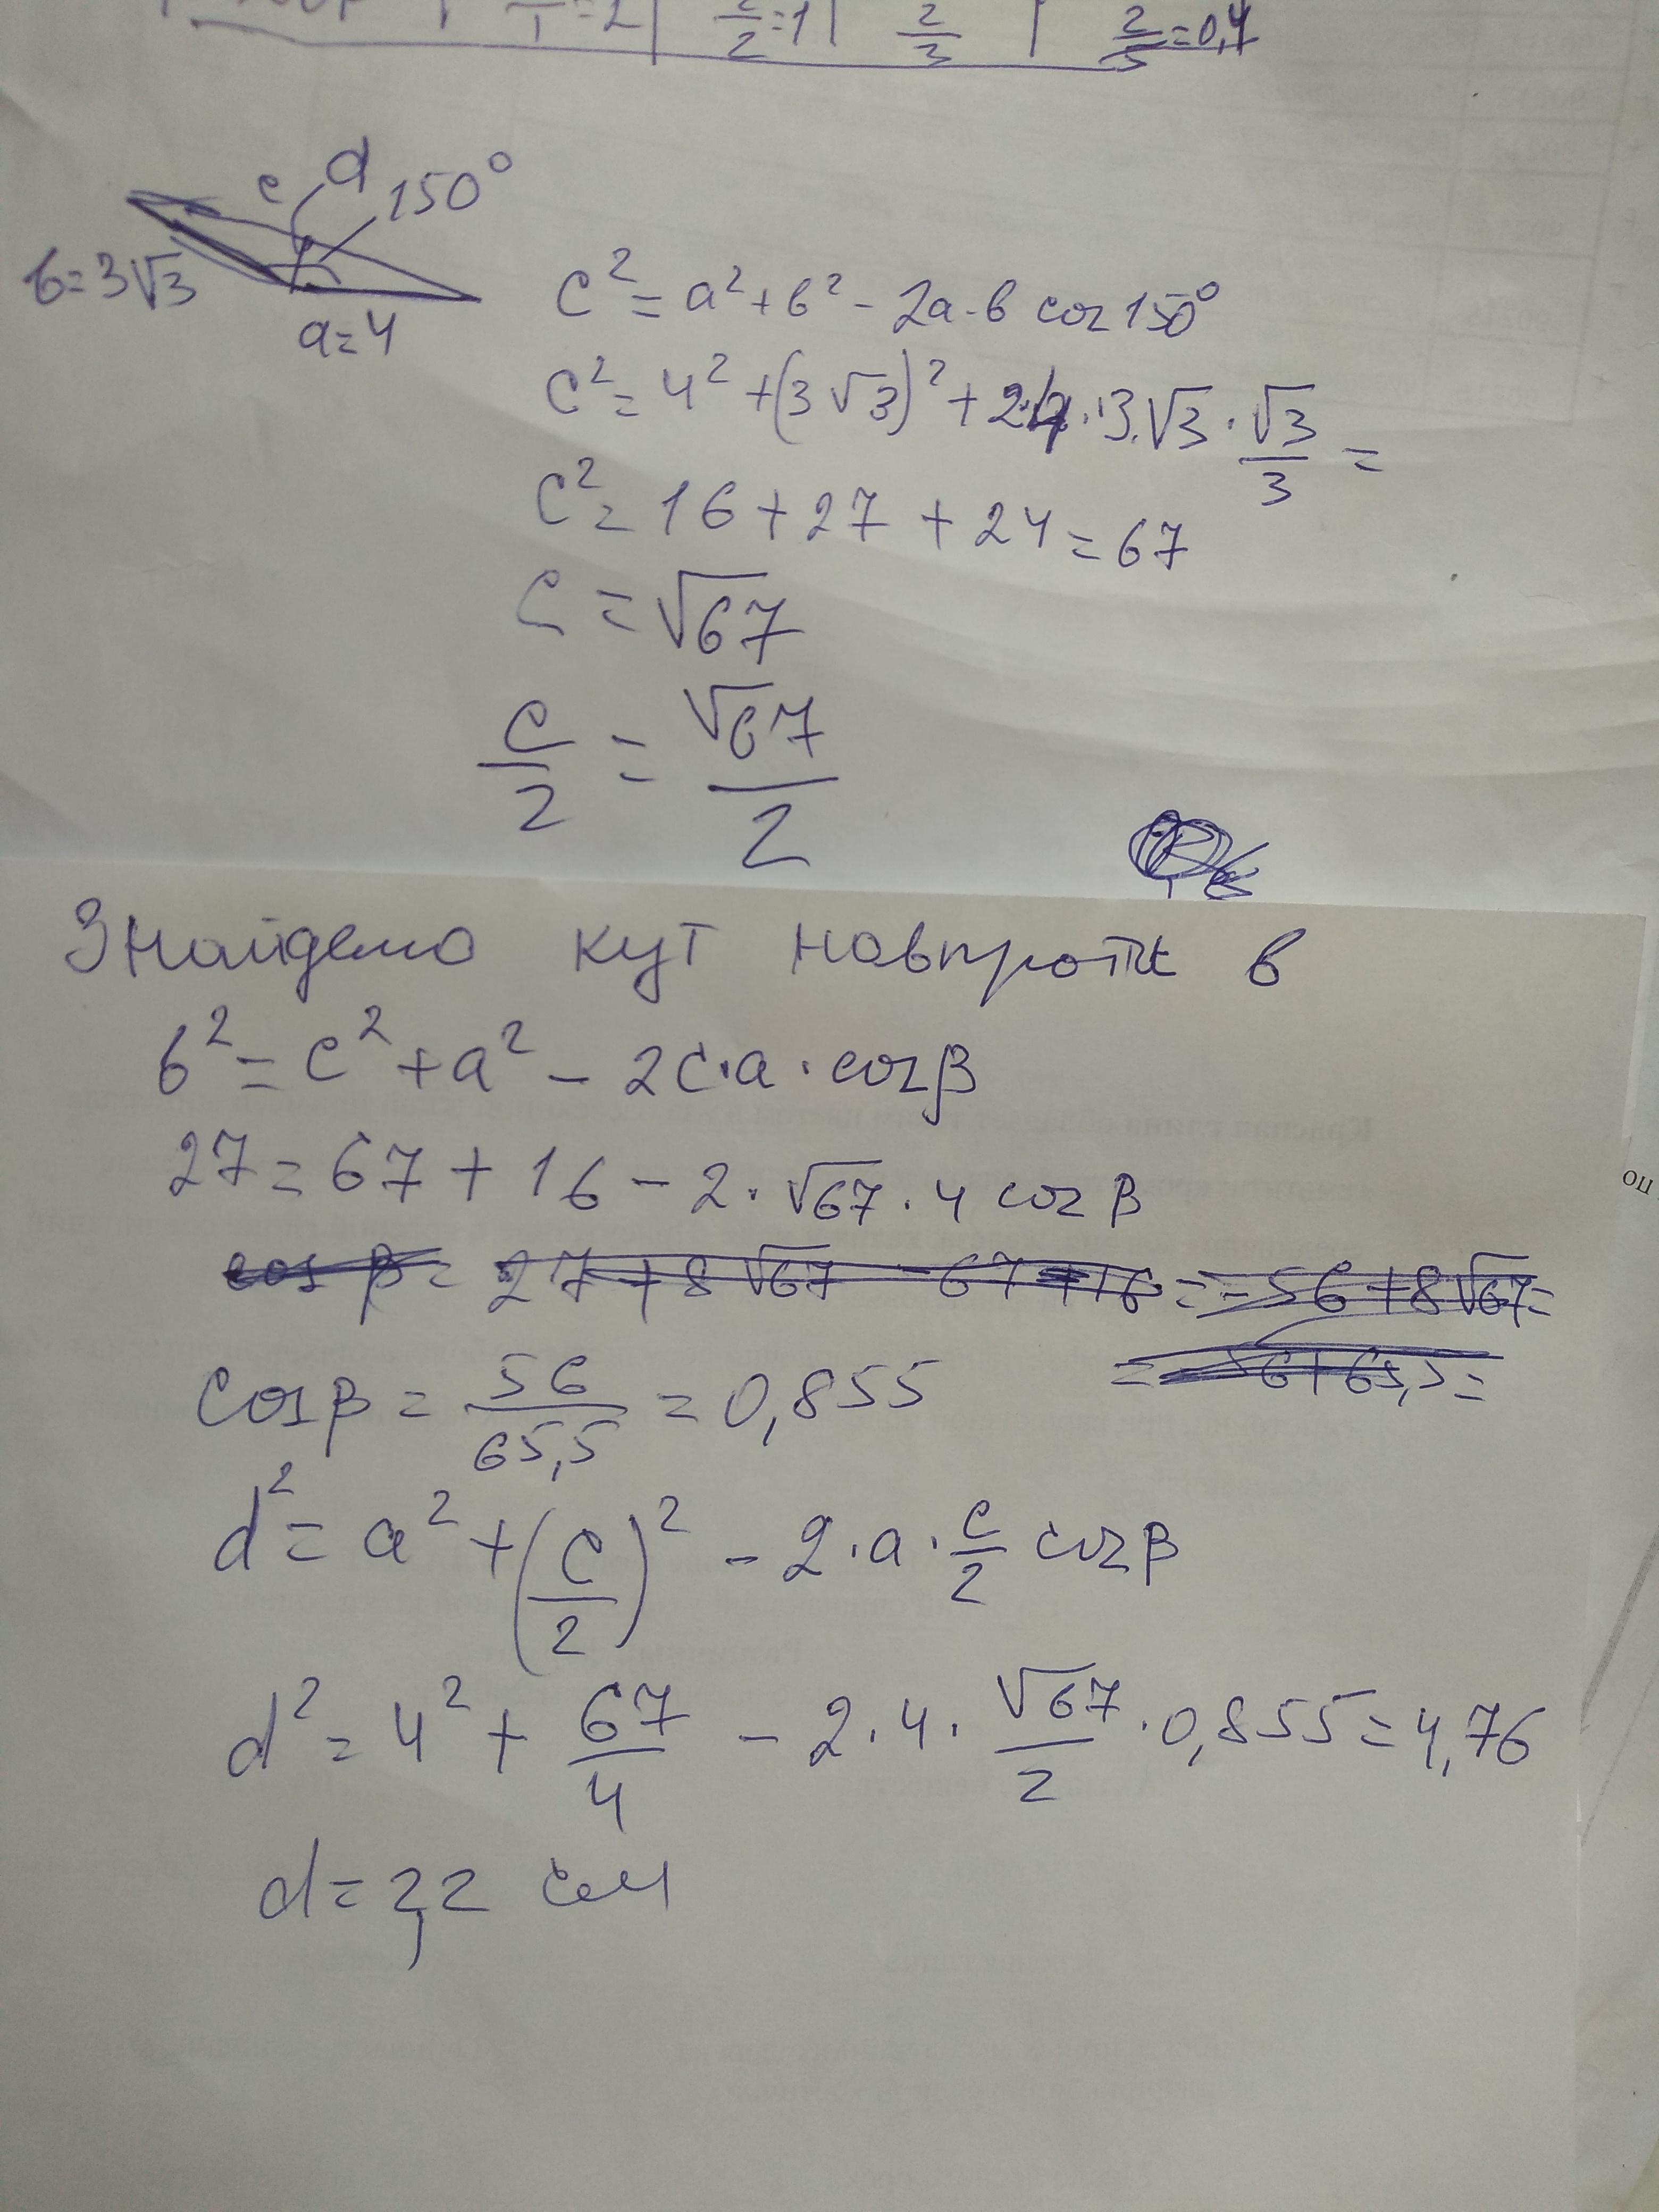 2/2=1 | 2/3 | 2/5=0,4
c d 150°
в=3√3
a=4
c²=a²+в²-2a·в cos150°
c²=4²+(3√3)²+2·4·3·√3·√3/3=
c²=16+27+24=67
c=√67
c/2=√67/2
Знайдемо кут навпроти в
в²=c²+a²-2c·a·cosβ
27=67+16-2·√67·4cosβ
cosβ=27+8√67-67+16=-56+8√67=
=-56+65,5=
cosβ=56/65,5=0,855
d²=a²+(c/2)²-2·a·c/2 cosβ
d²=4²+67/4-2·4·√67/2·0,855=4,76
d=2,2 см